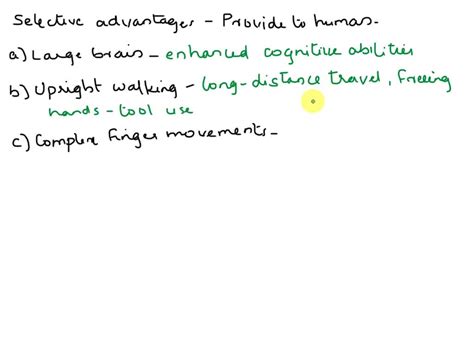 Selective advantages - Provide to human-
a) Large brain - enhanced cognitive abilities
b) Upright walking - long-distance travel, freeing
hands - tool use
c) Complex finger movements -